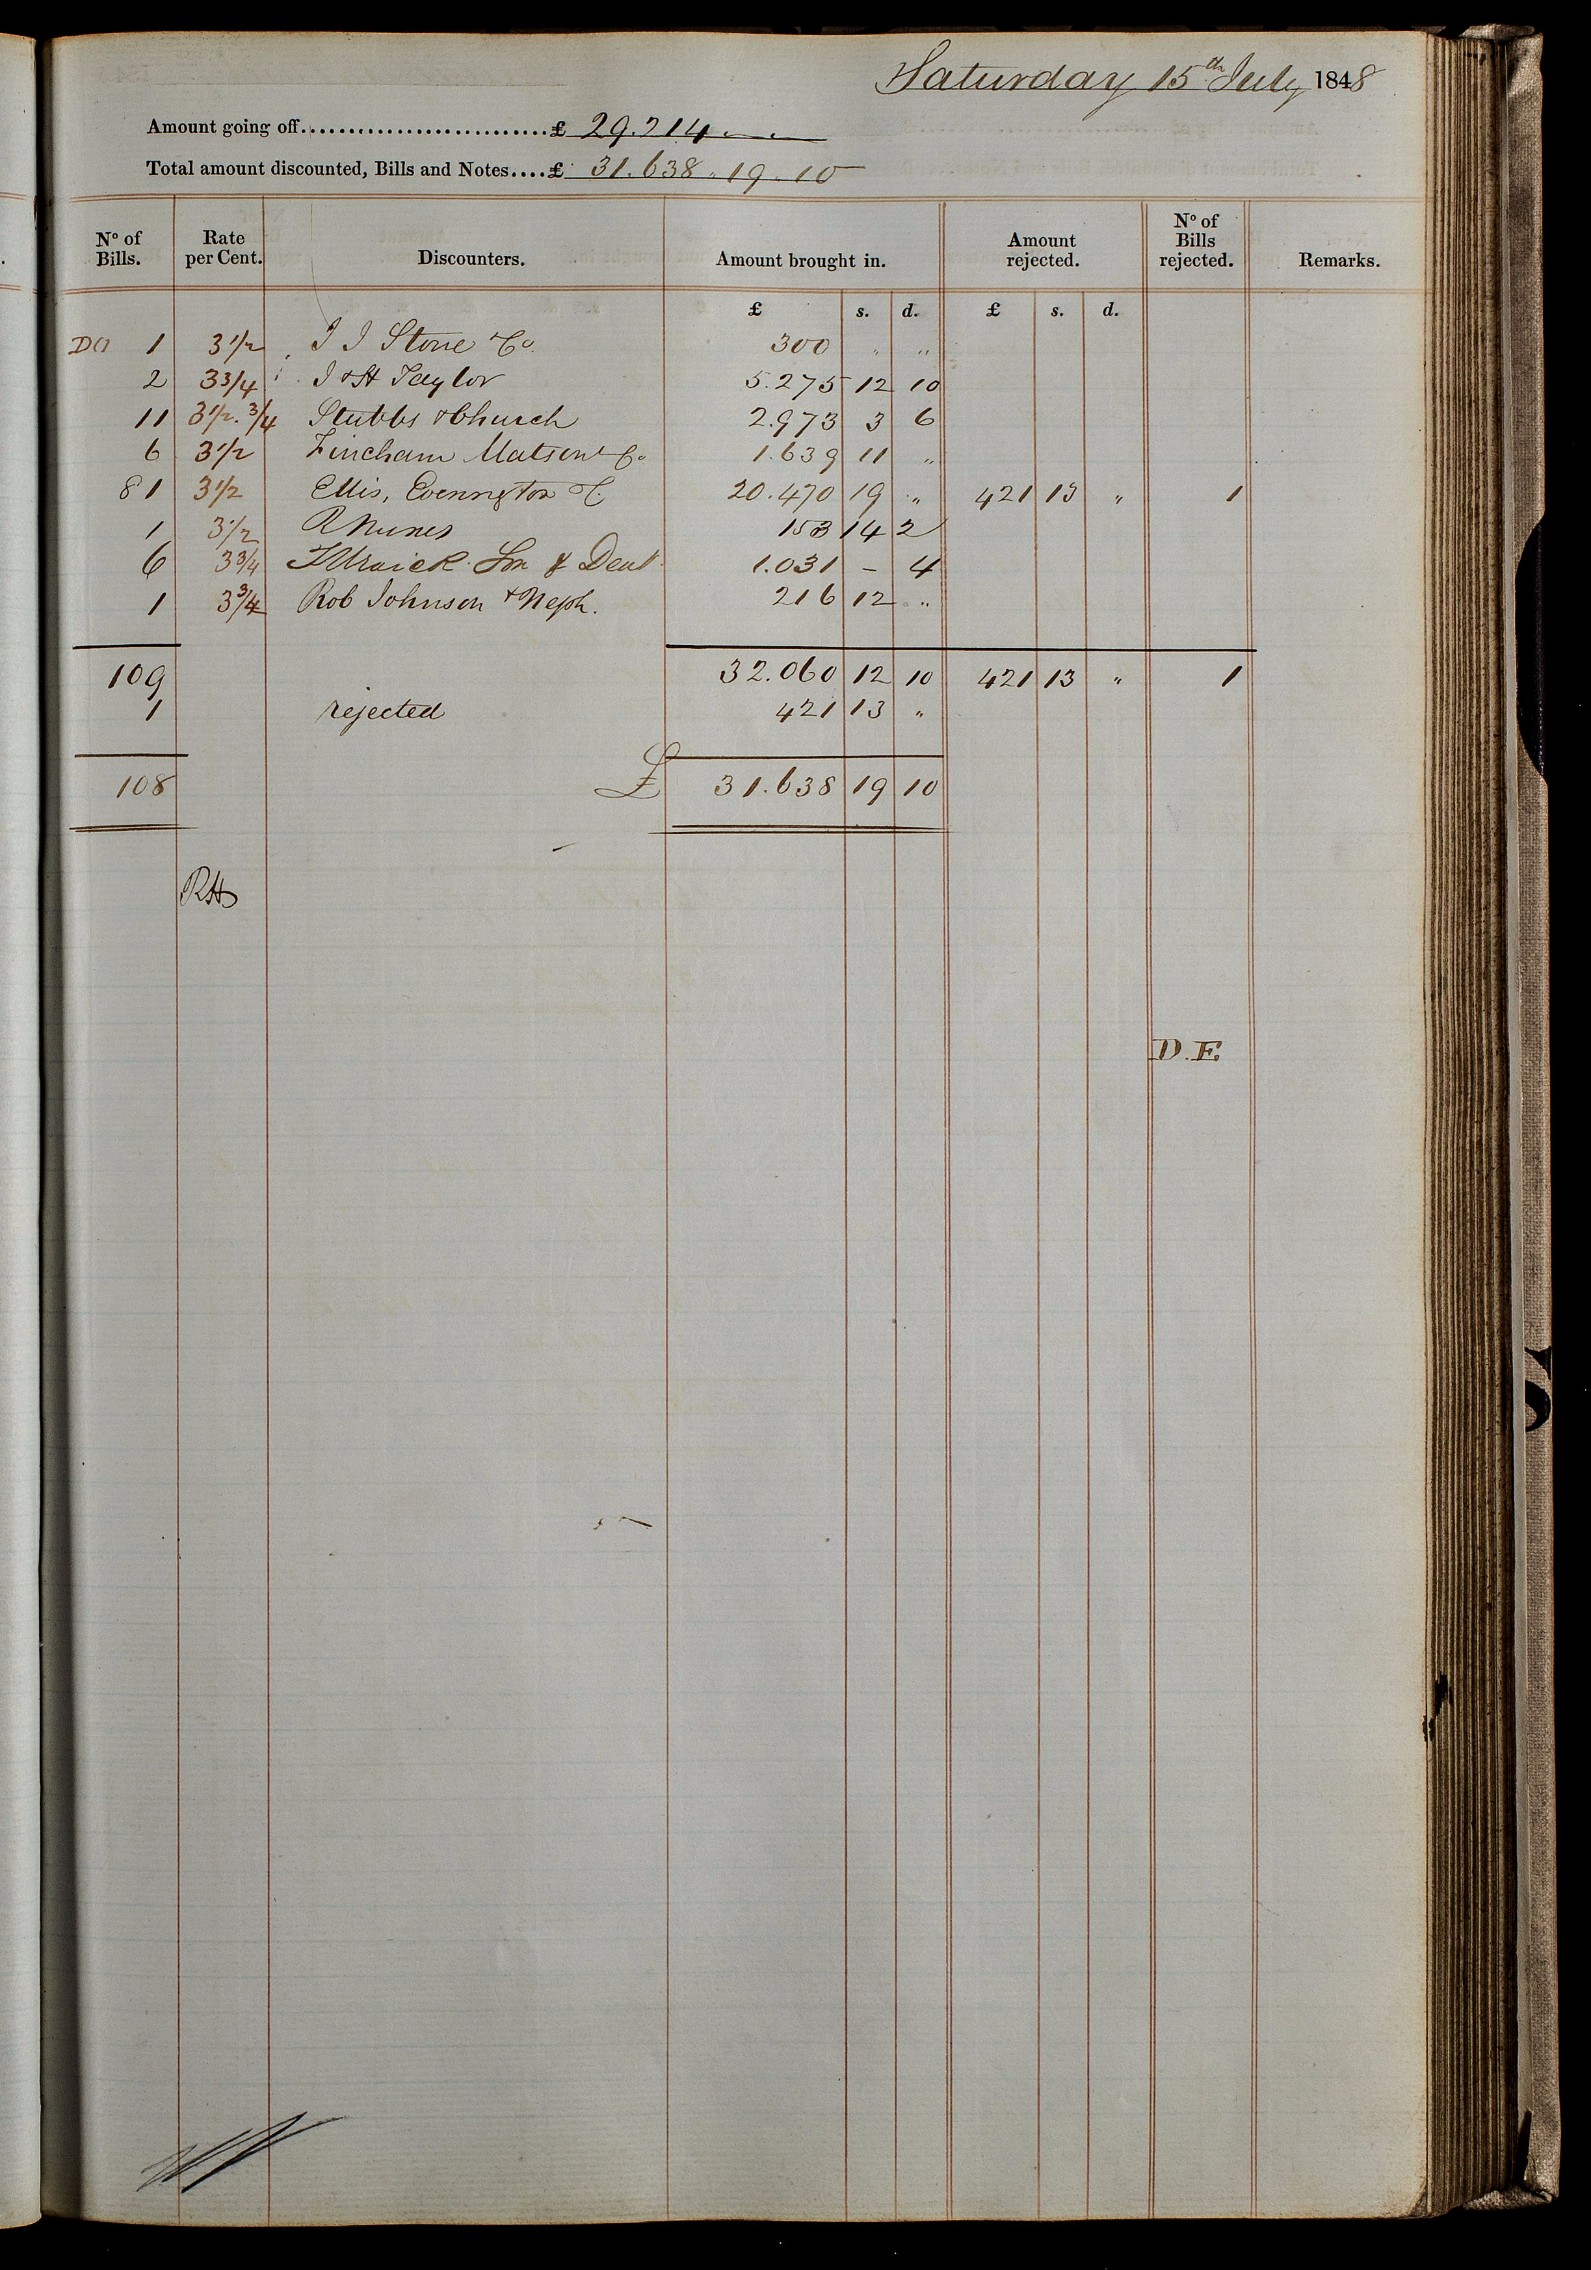 Saturday 15th July 1848
Amount going off...........................£ 29.214 " "
Total amount discounted, Bills and Notes....£ 31.638 " 19 " 10
No of Bills. Rate per Cent. Discounters. Amount brought in. Amount rejected. No of Bills rejected. Remarks.
£ s. d. £ s. d.
DO 1 3 1/2 J J Stone & Co. 300 " "
2 3 3/4 J & H Taylor 5.275 12 10
11 3 1/2. 3/4 Stubbs & Church 2.973 3 6
6 3 1/2 Fincham Matson & Co 1.639 11 "
81 3 1/2 Ellis, Everington & C. 20.470 19 " 421 13 " 1
1 3 1/2 R Nunes 153 14 2
6 3 3/4 Son & Dent 1.031 – 4
1 3 3/4 Rob Johnson & Neph. 216 12 "
109 32.060 12 10 421 13 " 1
1 rejected 421 13 "
108 £ 31.638 19 10
RH
D.E